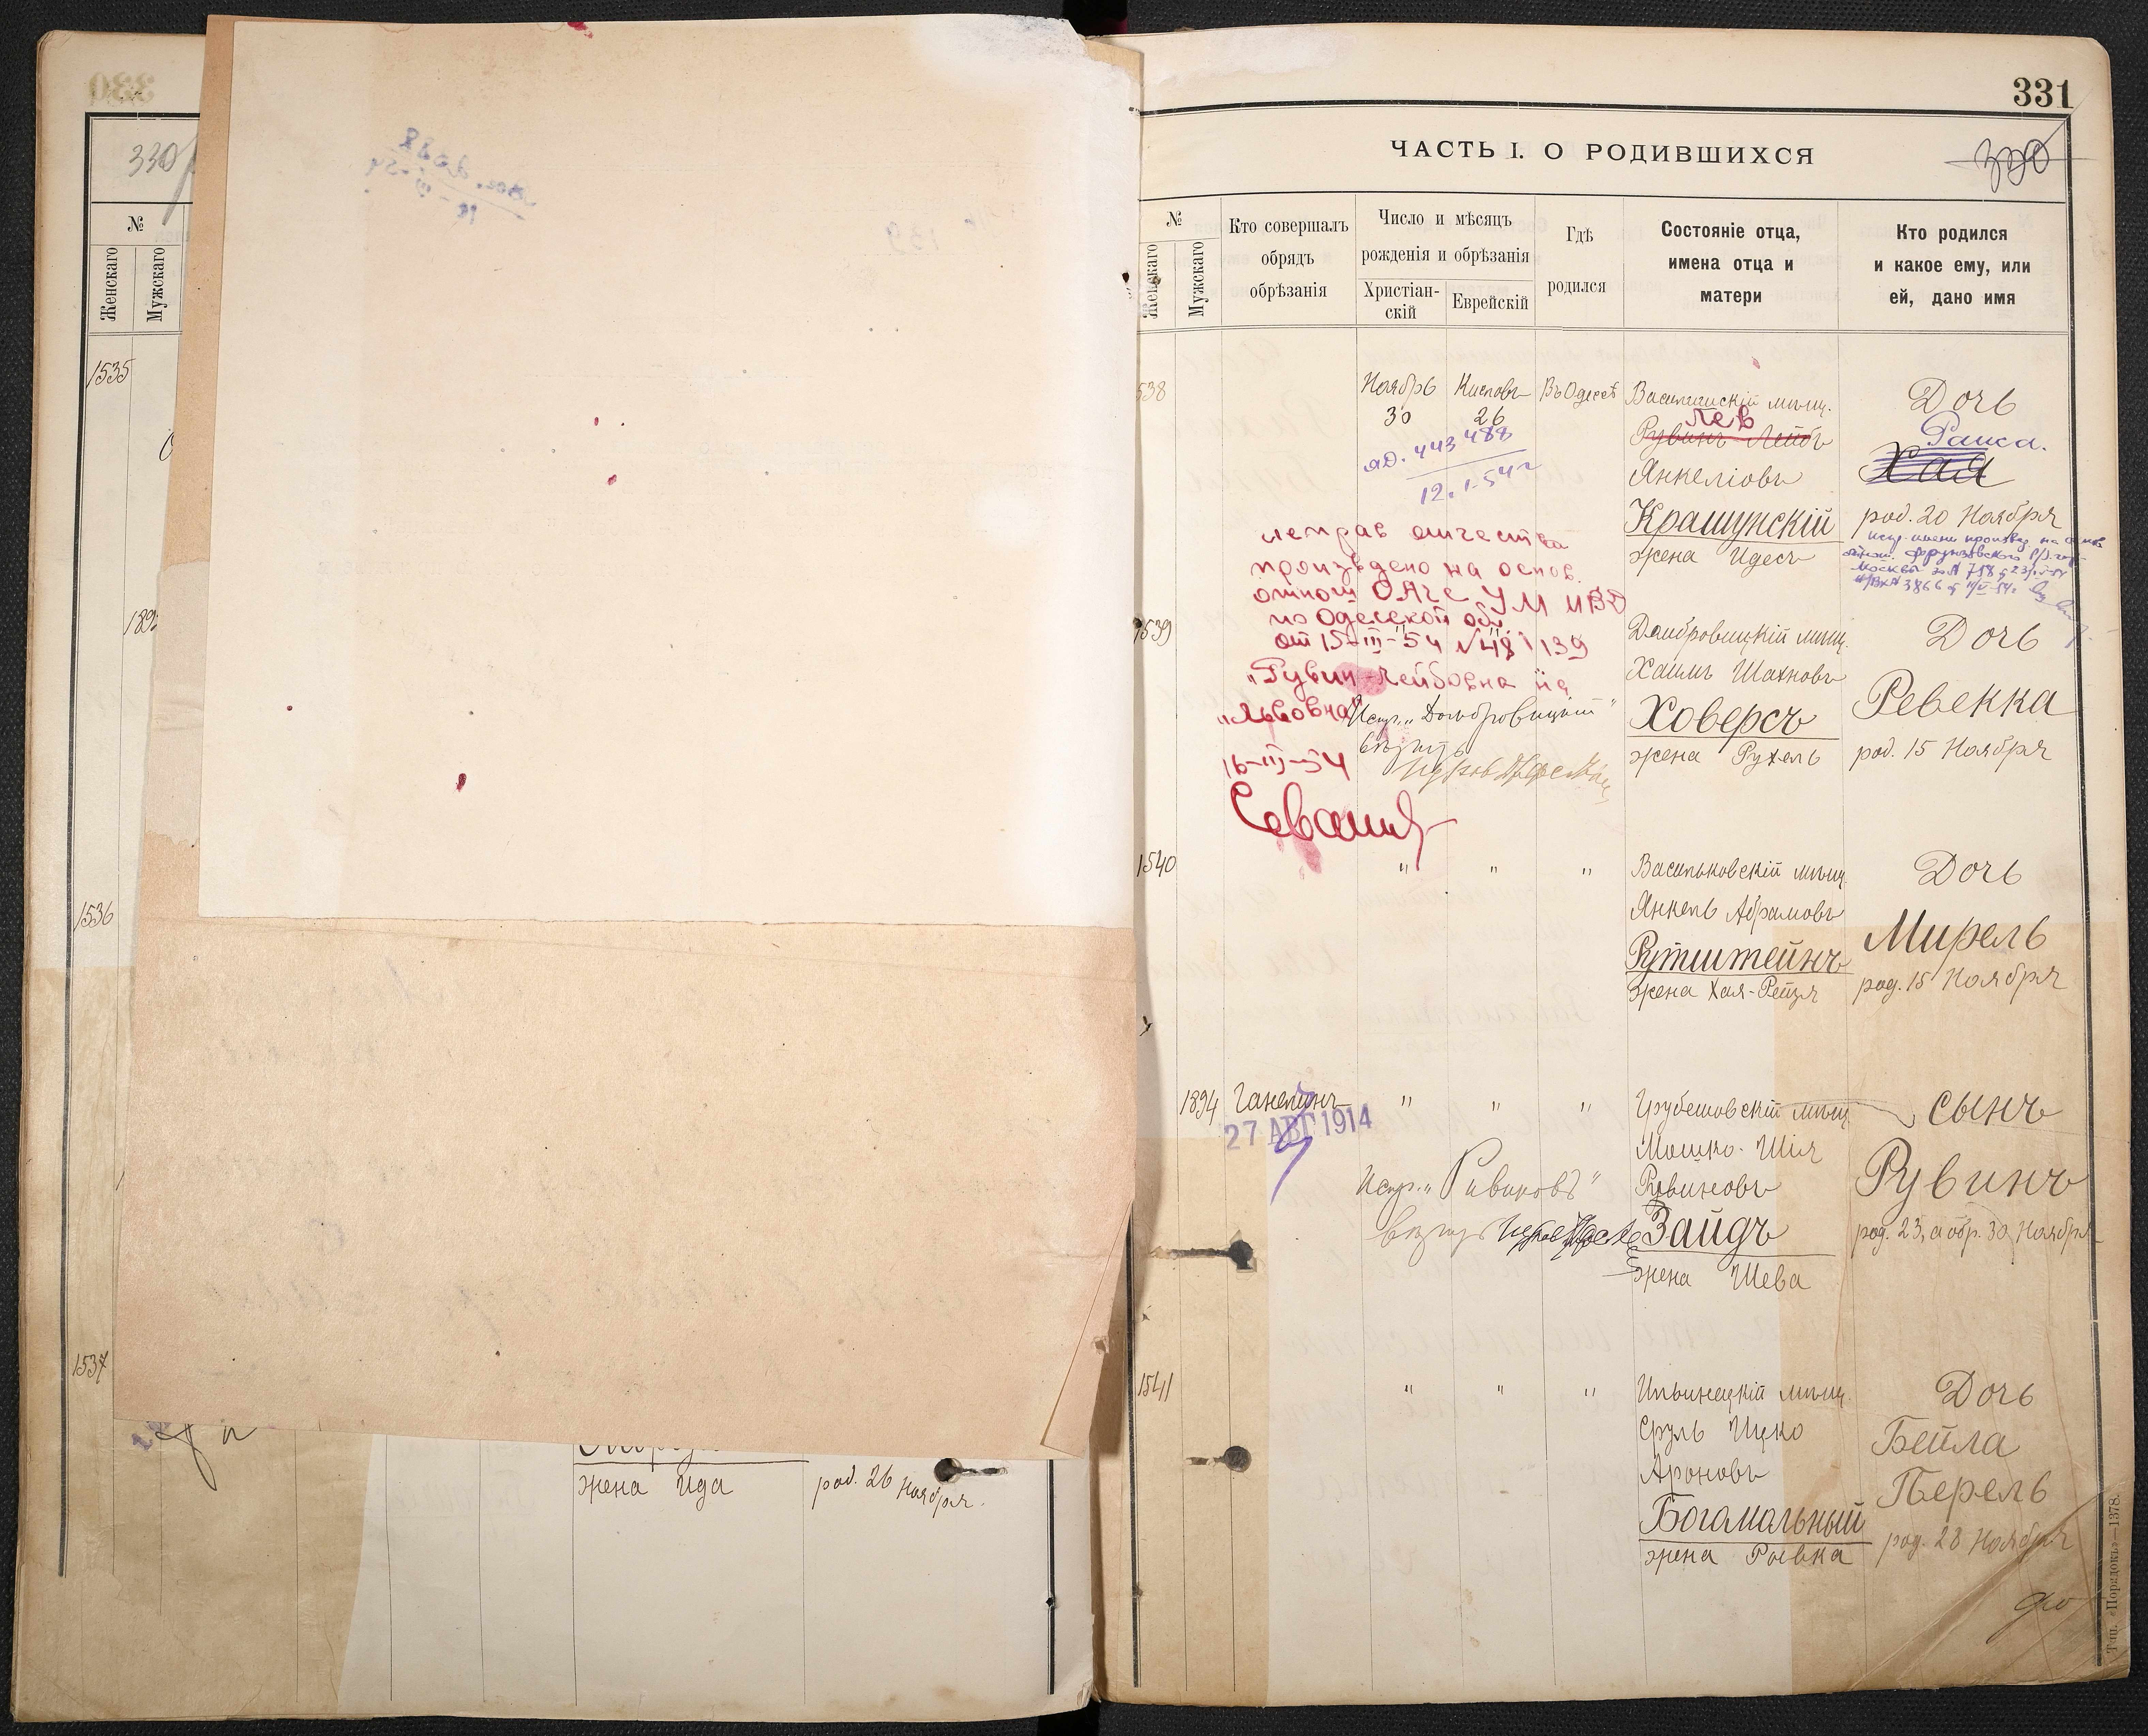 330
№
Женскаго
Мужскаго
1535
1536
1537
жена Ида
род. 26 Ноября.
331
ЧАСТЬ I. О РОДИВШИХСЯ
№
Женскаго
Мужскаго
Кто совершалъ
обрядъ
обрѣзанія
Число и мѣсяцъ
рожденія и обрѣзанія
Христіан-
скій
Еврейскій
Гдѣ
родился
Состояніе отца,
имена отца и
матери
Кто родился
и какое ему, или
ей, дано имя
538
Ноябрь
30
Кислевъ
26
Въ Одессѣ
443488
12.1.54 г
Василишскій мѣщ.
Лев
Рувинъ Лейбъ
Янкеліовъ
Крашунскій
жена Идесъ
Дочь
Раиса.
Хая
род. 20 Ноября
Испр. имени произвед на основ
отнош. Фрунзовского
Москвы за № 718
исправ отчества
произведено на основ.
отнош ОАГС УМ МВД
по Одесской обл.
от 15-III-54 № 48/139
"Рувин-Лейбовна на
"Львовна"
16-III-54
1539
Испр. "Домбровицкій"
Домбровицкій мѣщ.
Хаимъ Шахновъ
Ховерсъ
жена Рухель
Дочь
Ревекка
род. 15 Ноября
1540
" " "
Васильковскій мѣщ.
Янкель Абрамовъ
Рутштейнъ
жена Хая-Рейзя
Дочь
Мирель
род. 15 Ноября
1894
27 АВГ 1914
" " "
Грубешовскій мѣщ.
Мошко-Шія
Рувиновъ
Зайдъ
жена Шева
сынъ
Рувинъ
род. 23, а обр. 30 Ноября
1541
" " "
Ильинецкій мѣщ.
Сруль Ицко
Ароновъ
Богомольный
жена Ривка
Дочь
Бейла
Перель
род. 28 Ноября
Тип. «Порядокъ»—1378.